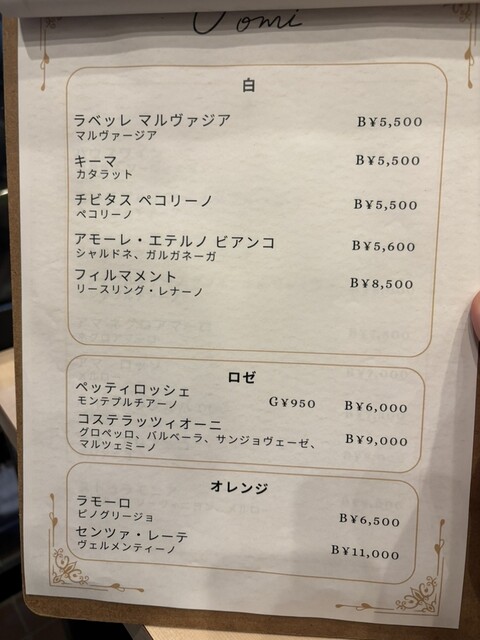 白
ラベッレ マルヴァジア B¥5,500
マルヴァージア
キーマ B¥5,500
カタラット
チビタス ペコリーノ B¥5,500
ペコリーノ
アモーレ・エテルノ ビアンコ B¥5,600
シャルドネ、ガルガネーガ
フィルマメント B¥8,500
リースリング・レナーノ
ロゼ
ペッティロッシェ G¥950 B¥6,000
モンテプルチアーノ
コステラッツィオーニ B¥9,000
グロペッロ、バルベーラ、サンジョヴェーゼ、
マルツェミーノ
オレンジ
ラモーロ B¥6,500
ピノグリージョ
センツァ・レーテ B¥11,000
ヴェルメンティーノ